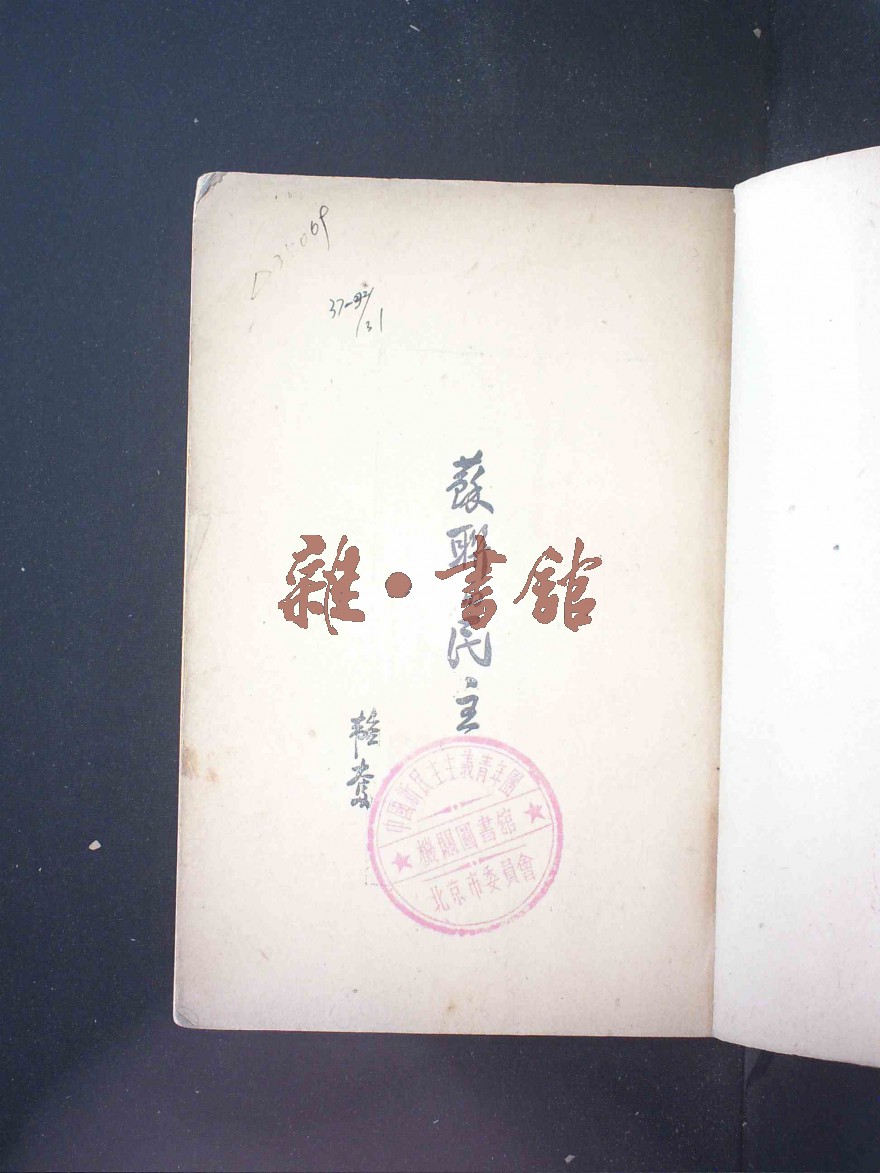 蘇聯的民主
韜奮
雜·書館
中國新民主主義青年團
機關圖書館
北京市委員會